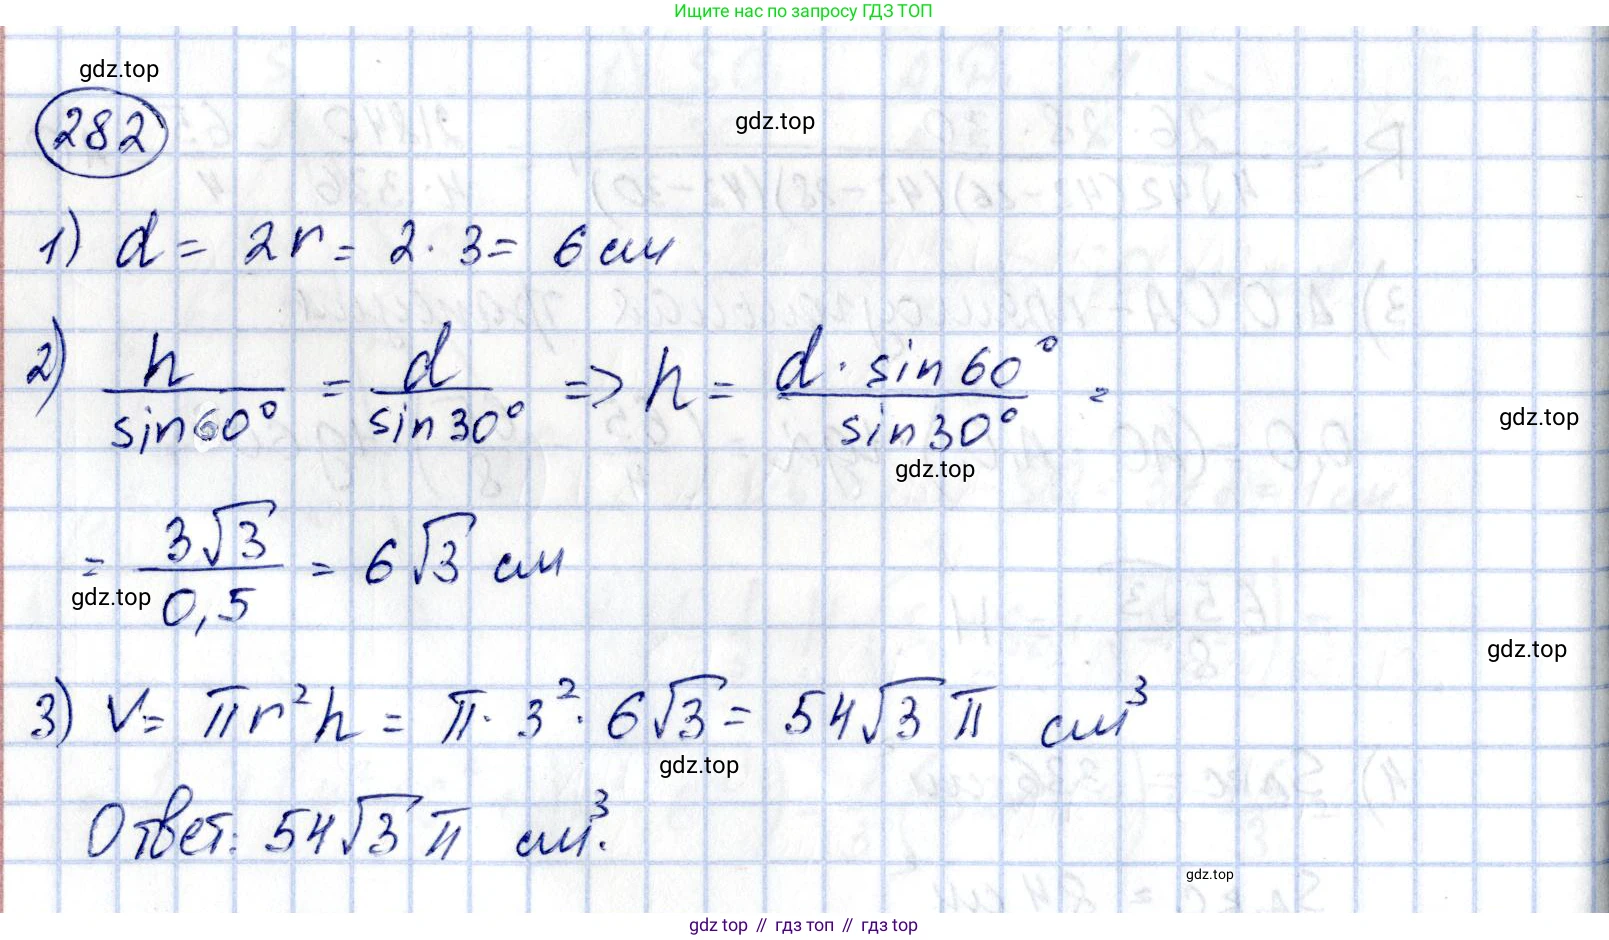 Ищите нас по запросу ГДЗ ТОП
gdz.top
282
gdz.top
1) d = 2r = 2 · 3 = 6 см
2) h/sin60° = d/sin30° => h = d · sin60°/sin30° =
gdz.top
gdz.top
= 3√3/0,5 = 6√3 см
gdz.top
gdz.top
3) V = πr²h = π · 3² · 6√3 = 54√3 π см³
gdz.top
Ответ: 54√3 π см³.
gdz.top
gdz top // гдз топ // gdz top